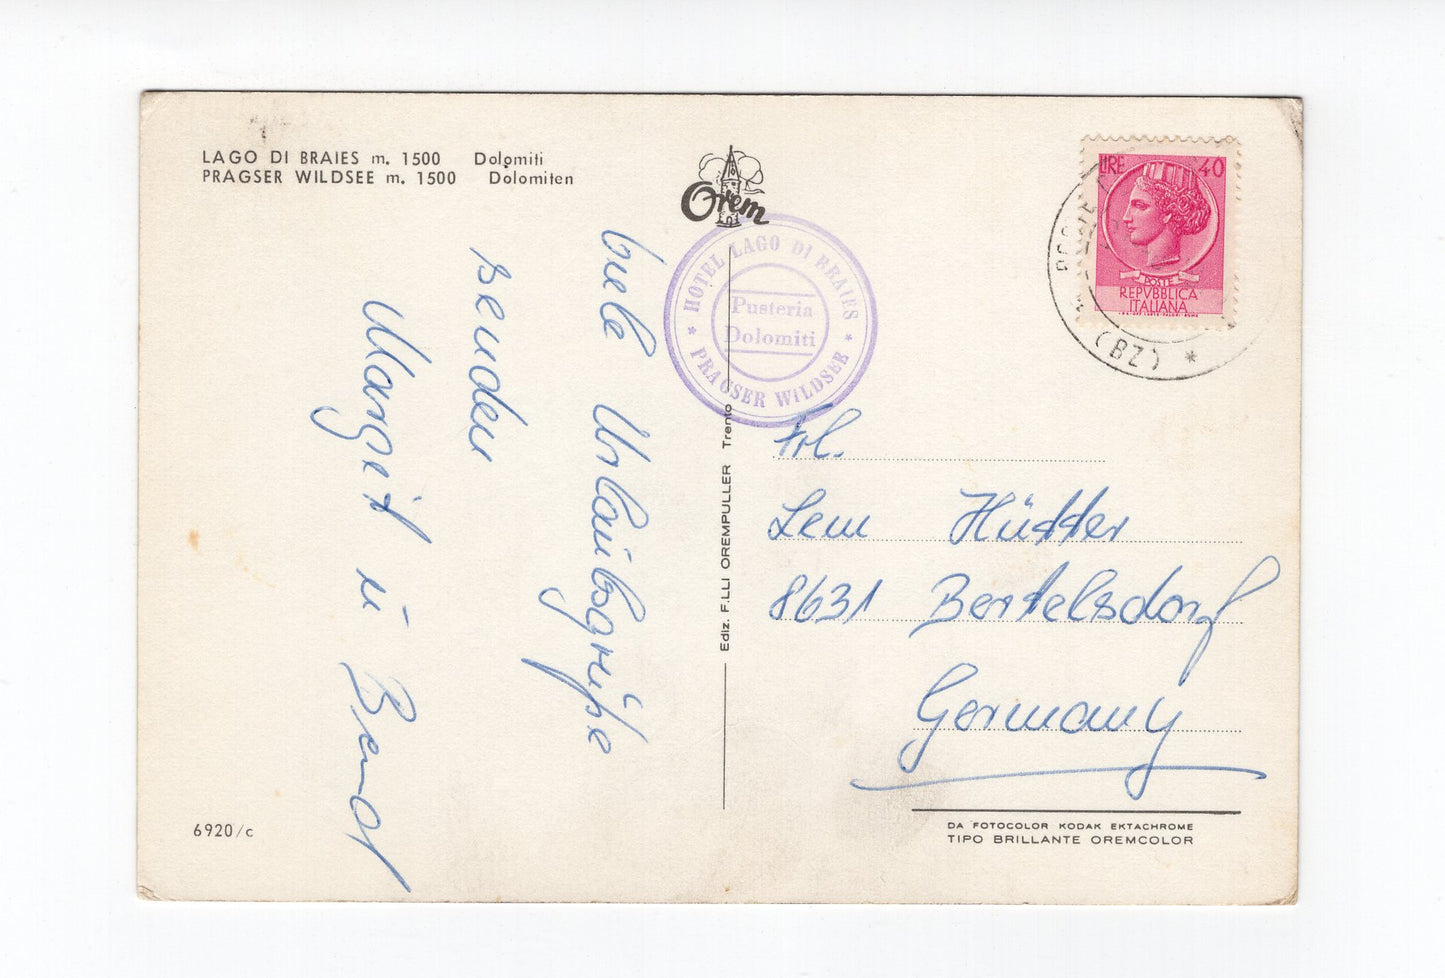 LAGO DI BRAIES m. 1500 Dolomiti
PRAGSER WILDSEE m. 1500 Dolomiten
Orem
HOTEL LAGO DI BRAIES
Pusteria
Dolomiti
* PRAGSER WILDSEE *
LIRE 40
POSTE
REPVBBLICA
ITALIANA
(BZ) *
Viele Urlaubsgrüße
senden
Margit u Bernd
Ediz. F.LLI OREMPULLER Trento
Frl.
Hütter
8631 Bertelsdorf
Germany
6920/c
DA FOTOCOLOR KODAK EKTACHROME
TIPO BRILLANTE OREMCOLOR